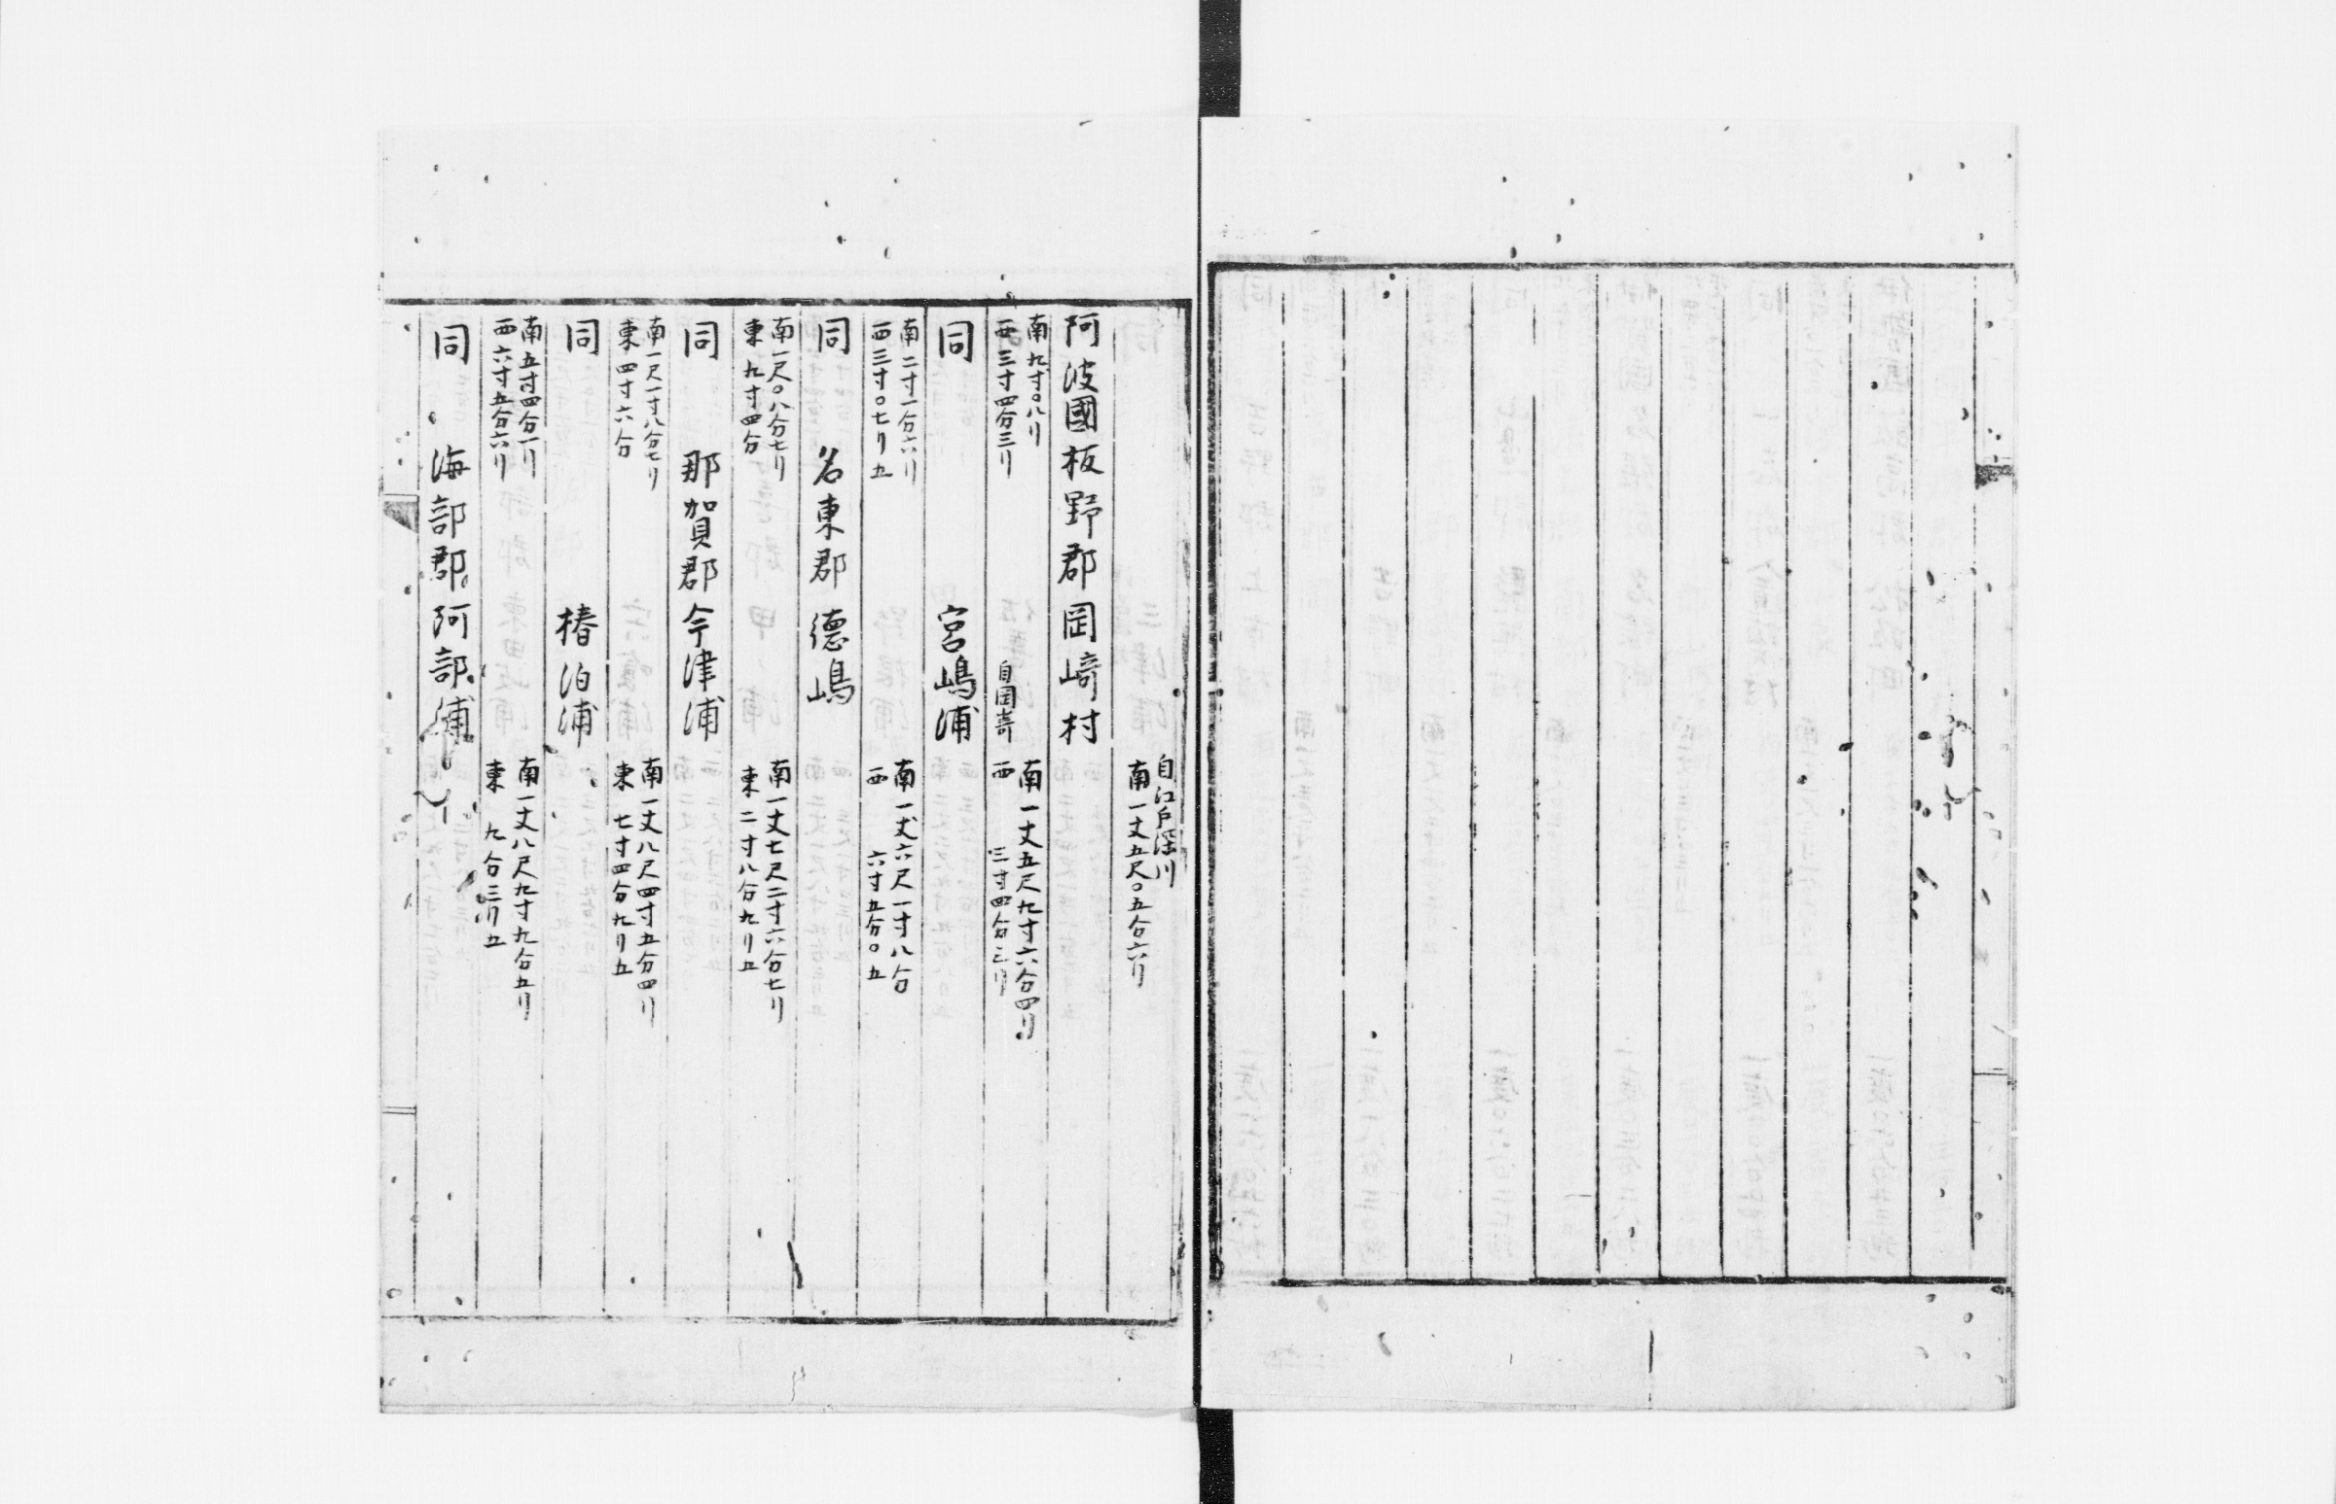 自江戸深川
南一丈五尺〇五分六リ
阿波國板野郡岡﨑村
南九寸〇八リ
西三寸四分三リ
自岡嵜
南一丈五尺九寸六分四リ
西三寸四分三リ
同 宮嶋浦
南二寸一分六リ
西三寸〇七リ五
南一丈六尺一寸八分
西六寸五分〇五
同 名東郡德嶋
南一尺〇八分七リ
東九寸四分
南一丈七尺二寸六分七リ
東二寸八分九リ五
同 那賀郡今津浦
南一尺一寸八分七リ
東四寸六分
南一丈八尺四寸五分四リ
東七寸四分九リ五
同 椿泊浦
南五寸四分一リ
西六寸五分六リ
南一丈八尺九寸九分五リ
東九分三リ五
同 海部郡阿部浦